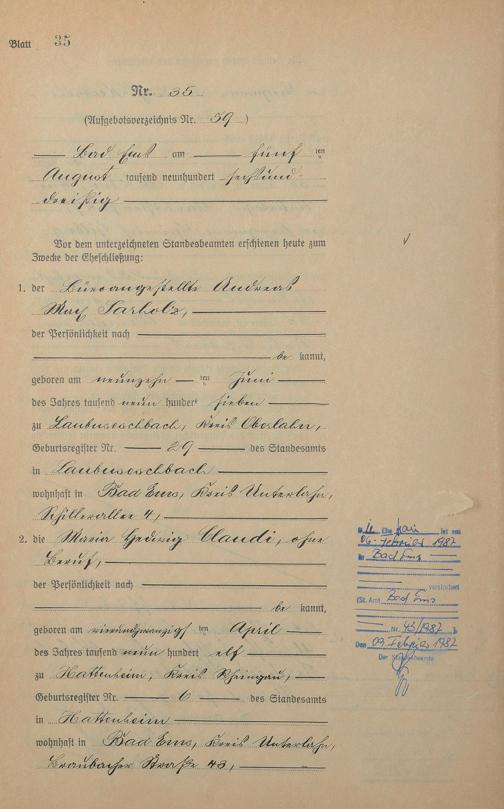 Blatt 35
Nr. 35
(Aufgebotsverzeichnis Nr. 39)
Bad Ems am fünf ten
August tausend neunhundert sechsund-
dreißig
Vor dem unterzeichneten Standesbeamten erschienen heute zum
Zwecke der Eheschließung:
1. der Büroangestellte Andreas
Max Sarholz,
der Persönlichkeit nach
be kannt,
geboren am neunzehn ten Juni
des Jahres tausend neun hundert sieben
zu Laubuseschbach, Kreis Oberlahn,
Geburtsregister Nr. 29 des Standesamts
in Laubuseschbach
wohnhaft in Bad Ems, Kreis Unterlahn,
Schillerallee 4,
2. die Maria Hedwig Claudi, ohne
Beruf,
der Persönlichkeit nach
be kannt,
geboren am vierundzwanzigs ten April
des Jahres tausend neun hundert elf
zu Hattenheim, Kreis Rheingau,
Geburtsregister Nr. 6 des Standesamts
in Hattenheim
wohnhaft in Bad Ems, Kreis Unterlahn,
Braubacher Straße 43,
ist am
06. Februar 1987
in Bad Ems
verstorben
(St. Amt Bad Ems
Nr. 43/1987
Den 09. Februar 1987
Der Standesbeamte